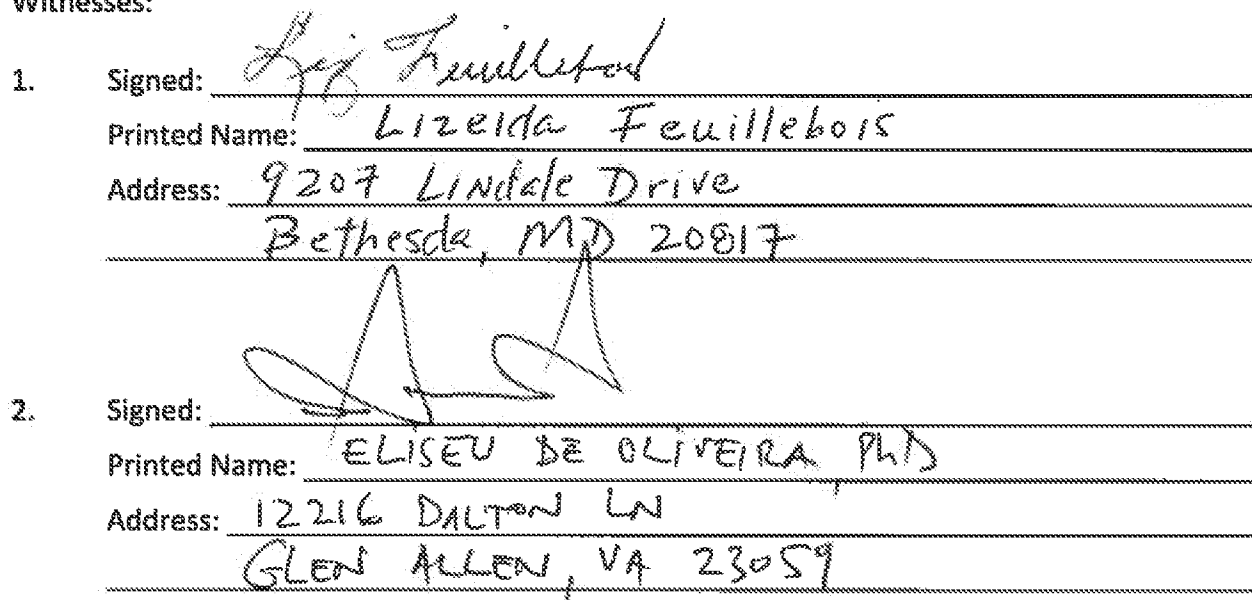 Witnesses:
1. Signed: Liz Feuillebois
Printed Name: Lizelda Feuillebois
Address: 9207 Lindale Drive
Bethesda, MD 20817
2. Signed:
Printed Name: ELISEU DE OLIVEIRA, PhD
Address: 12216 DALTON LN
GLEN ALLEN, VA 23059